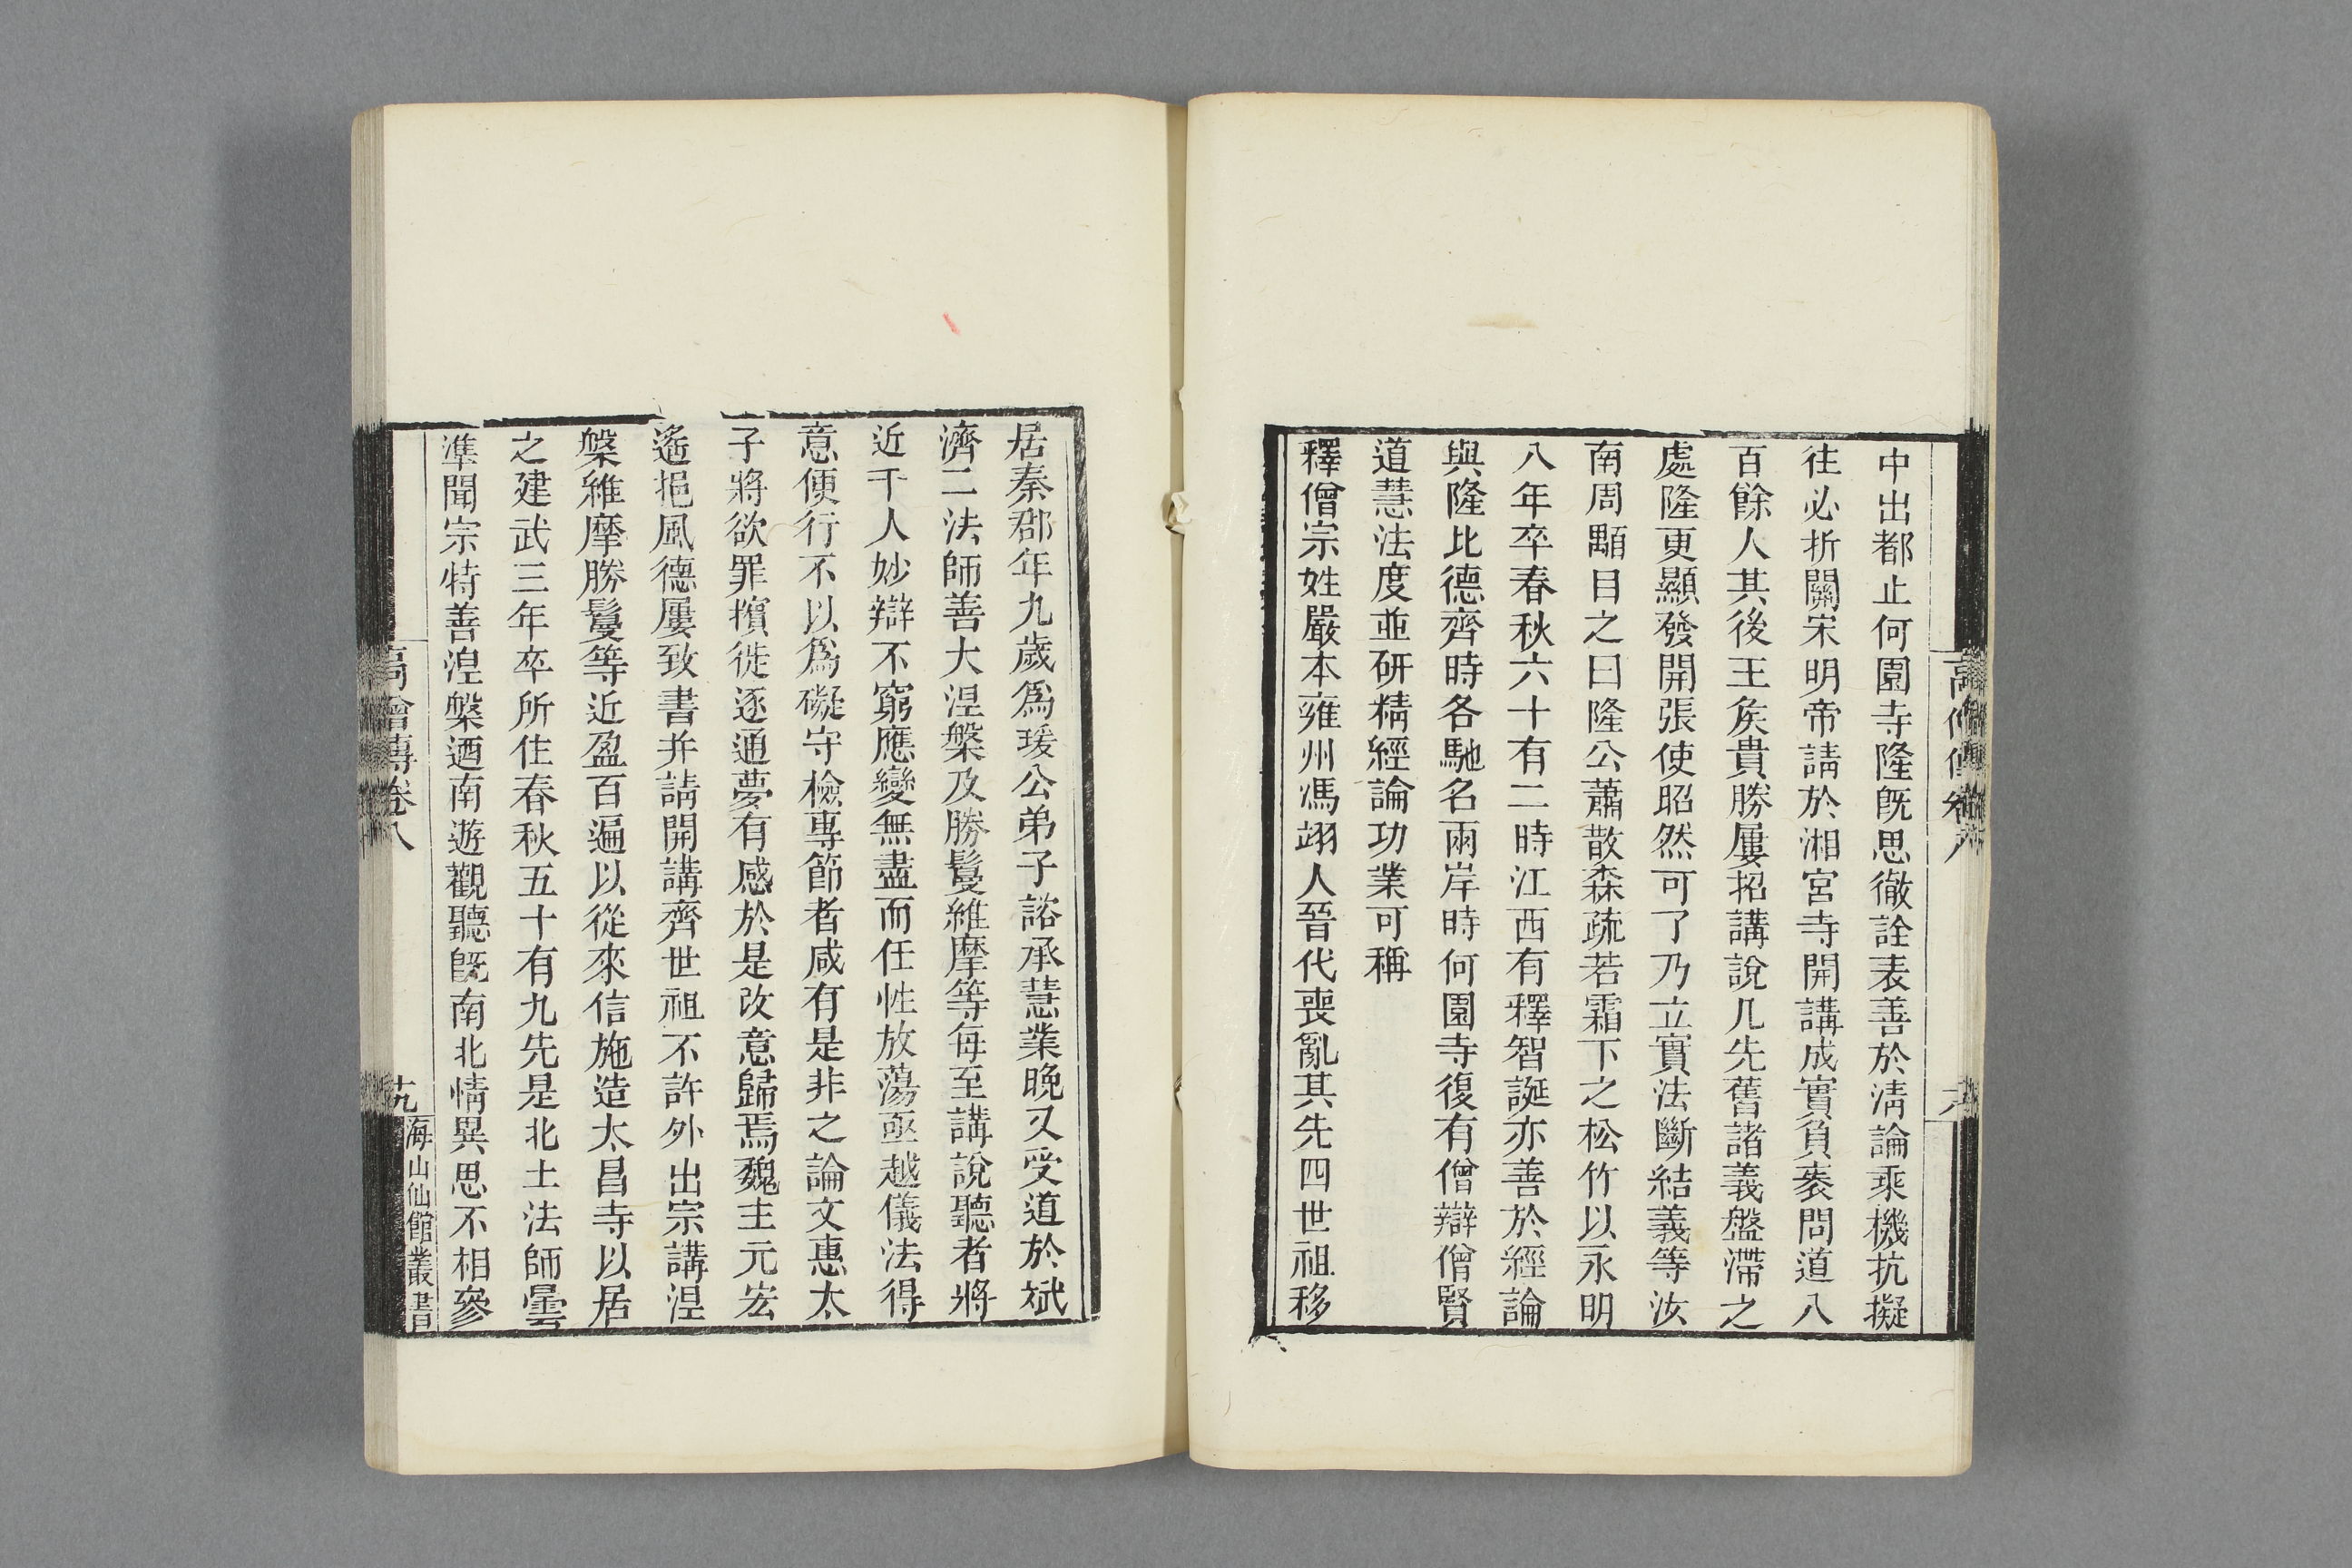 中出都止何園寺隆旣思徹詮表善於淸論乘機抗擬
往必折關宋明帝請於湘宮寺開講成實負袠問道八
百餘人其後王矦貴勝屢招講說凡先舊諸義盤滯之
處隆更顯發開張使昭然可了乃立實法斷結義等汝
南周顒目之曰隆公蕭散森疏若霜下之松竹以永明
八年卒春秋六十有二時江西有釋智誕亦善於經論
與隆比德齊時各馳名兩岸時何園寺復有僧辯僧賢
道慧法度並硏精經論功業可稱
釋僧宗姓嚴本雍州馮翊人晉代喪亂其先四世祖移
居秦郡年九歲爲瑗公弟子諮承慧業晚又受道於斌
濟二法師善大涅槃及勝鬘維摩等每至講說聽者將
近千人妙辯不窮應變無盡而任性放蕩亟越儀法得
意便行不以爲礙守檢專節者咸有是非之論文惠太
子將欲罪擯徙逐通夢有感於是改意歸焉魏主元宏
遙挹風德屢致書并請開講齊世祖不許外出宗講涅
槃維摩勝鬘等近盈百遍以從來信施造太昌寺以居
之建武三年卒所住春秋五十有九先是北土法師曇
準聞宗特善涅槃迺南遊觀聽旣南北情異思不相參
高僧傳卷八
十九
海山仙館叢書